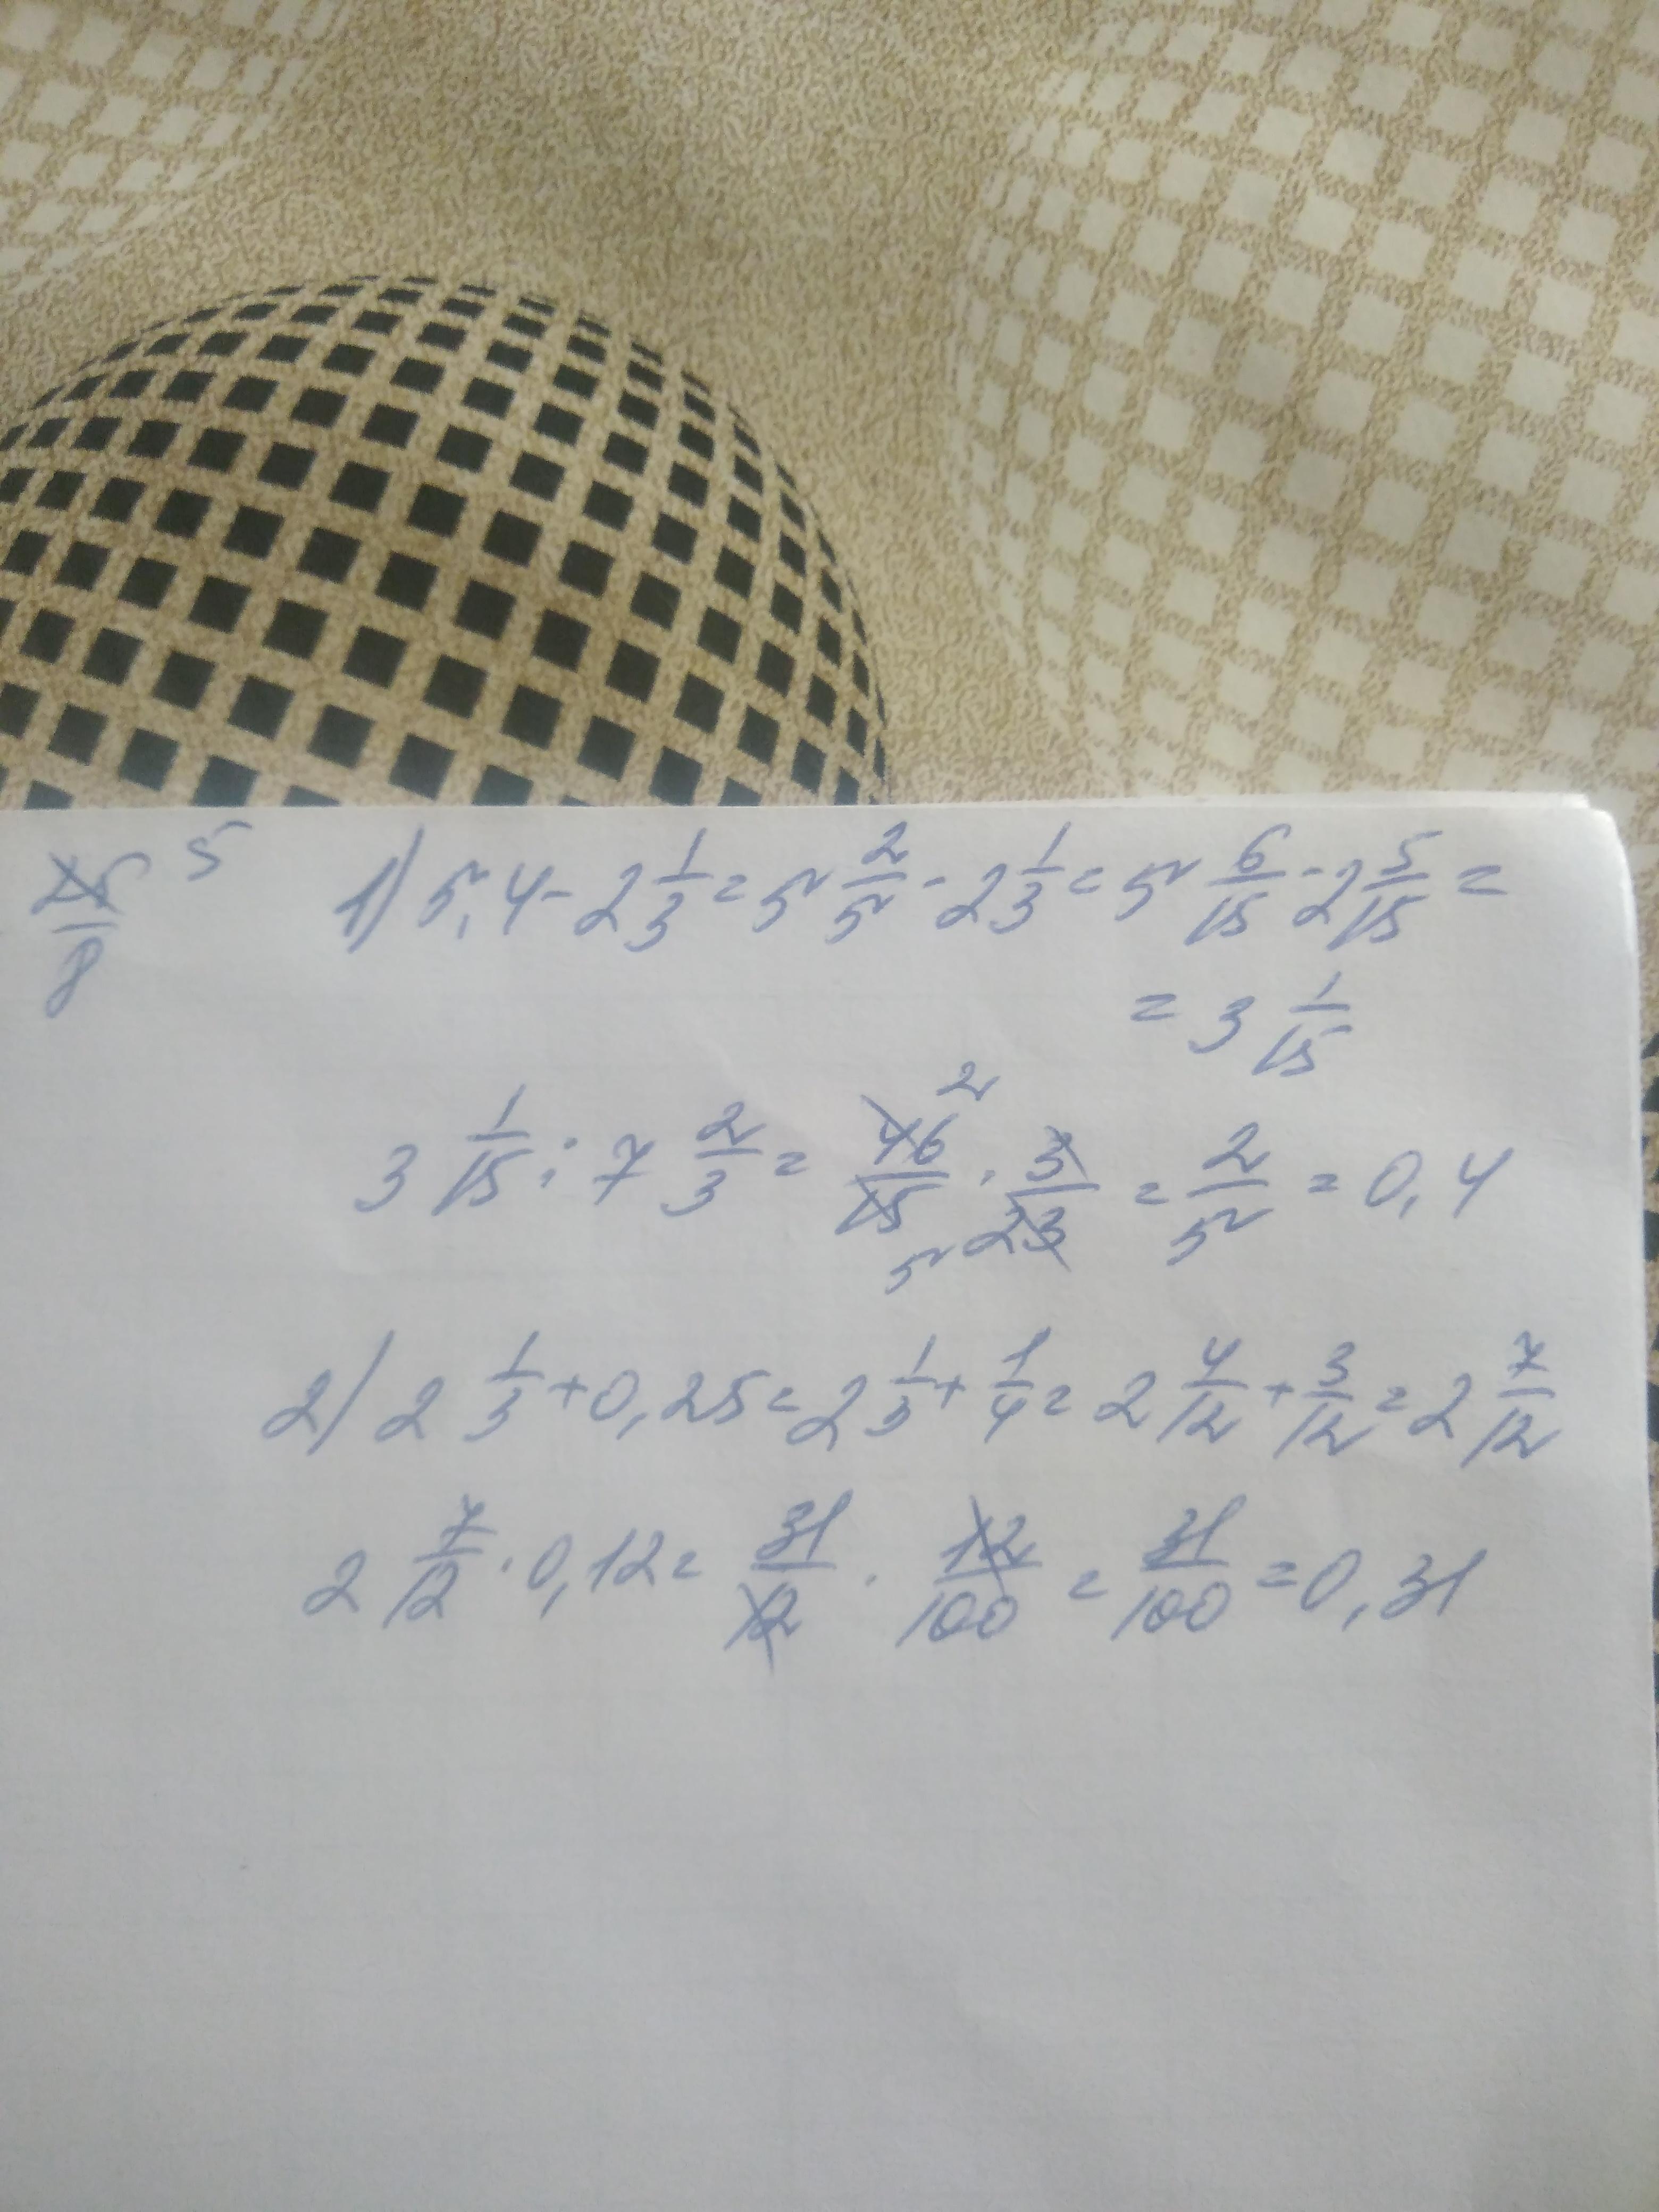 25/8 5
1) 5,4 - 2 1/3 = 5 2/5 - 2 1/3 = 5 6/15 - 2 5/15 =
= 3 1/15
3 1/15 : 7 2/3 = 46/15 · 3/23 = 2/5 = 0,4
2
5
2) 2 1/3 + 0,25 = 2 1/3 + 1/4 = 2 4/12 + 3/12 = 2 7/12
2 7/12 · 0,12 = 31/12 · 12/100 = 31/100 = 0,31